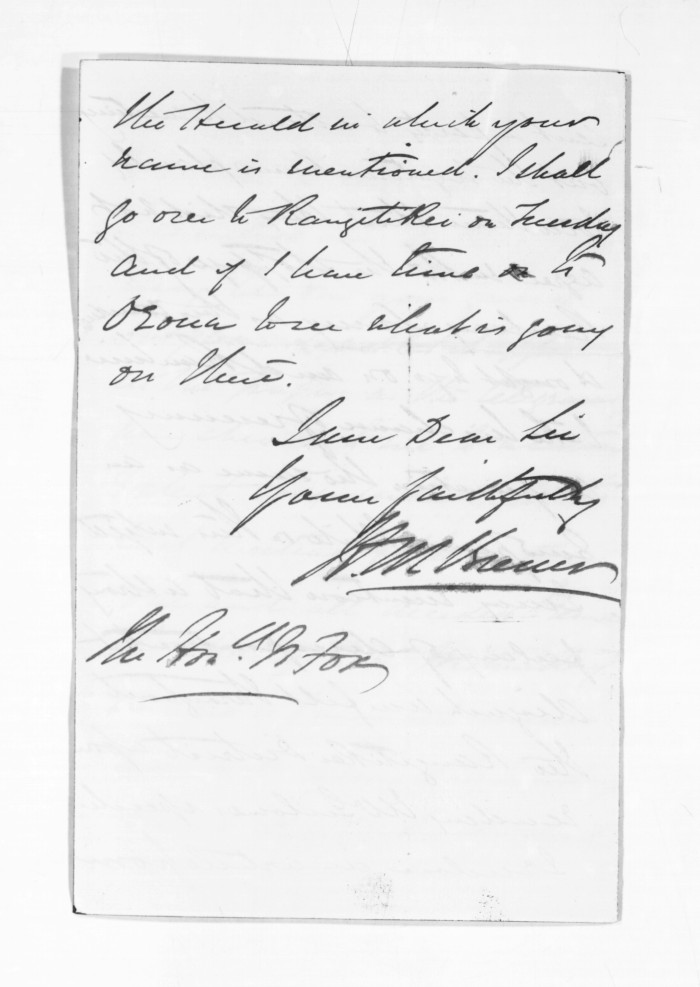 the Herald in which your
name is mentioned. I shall
go over to Rangitikei on Tuesday
and if I have time to
Oroua to see what is going
on there.
I am Dear Sir
Yours faithfully
The Honble W Fox